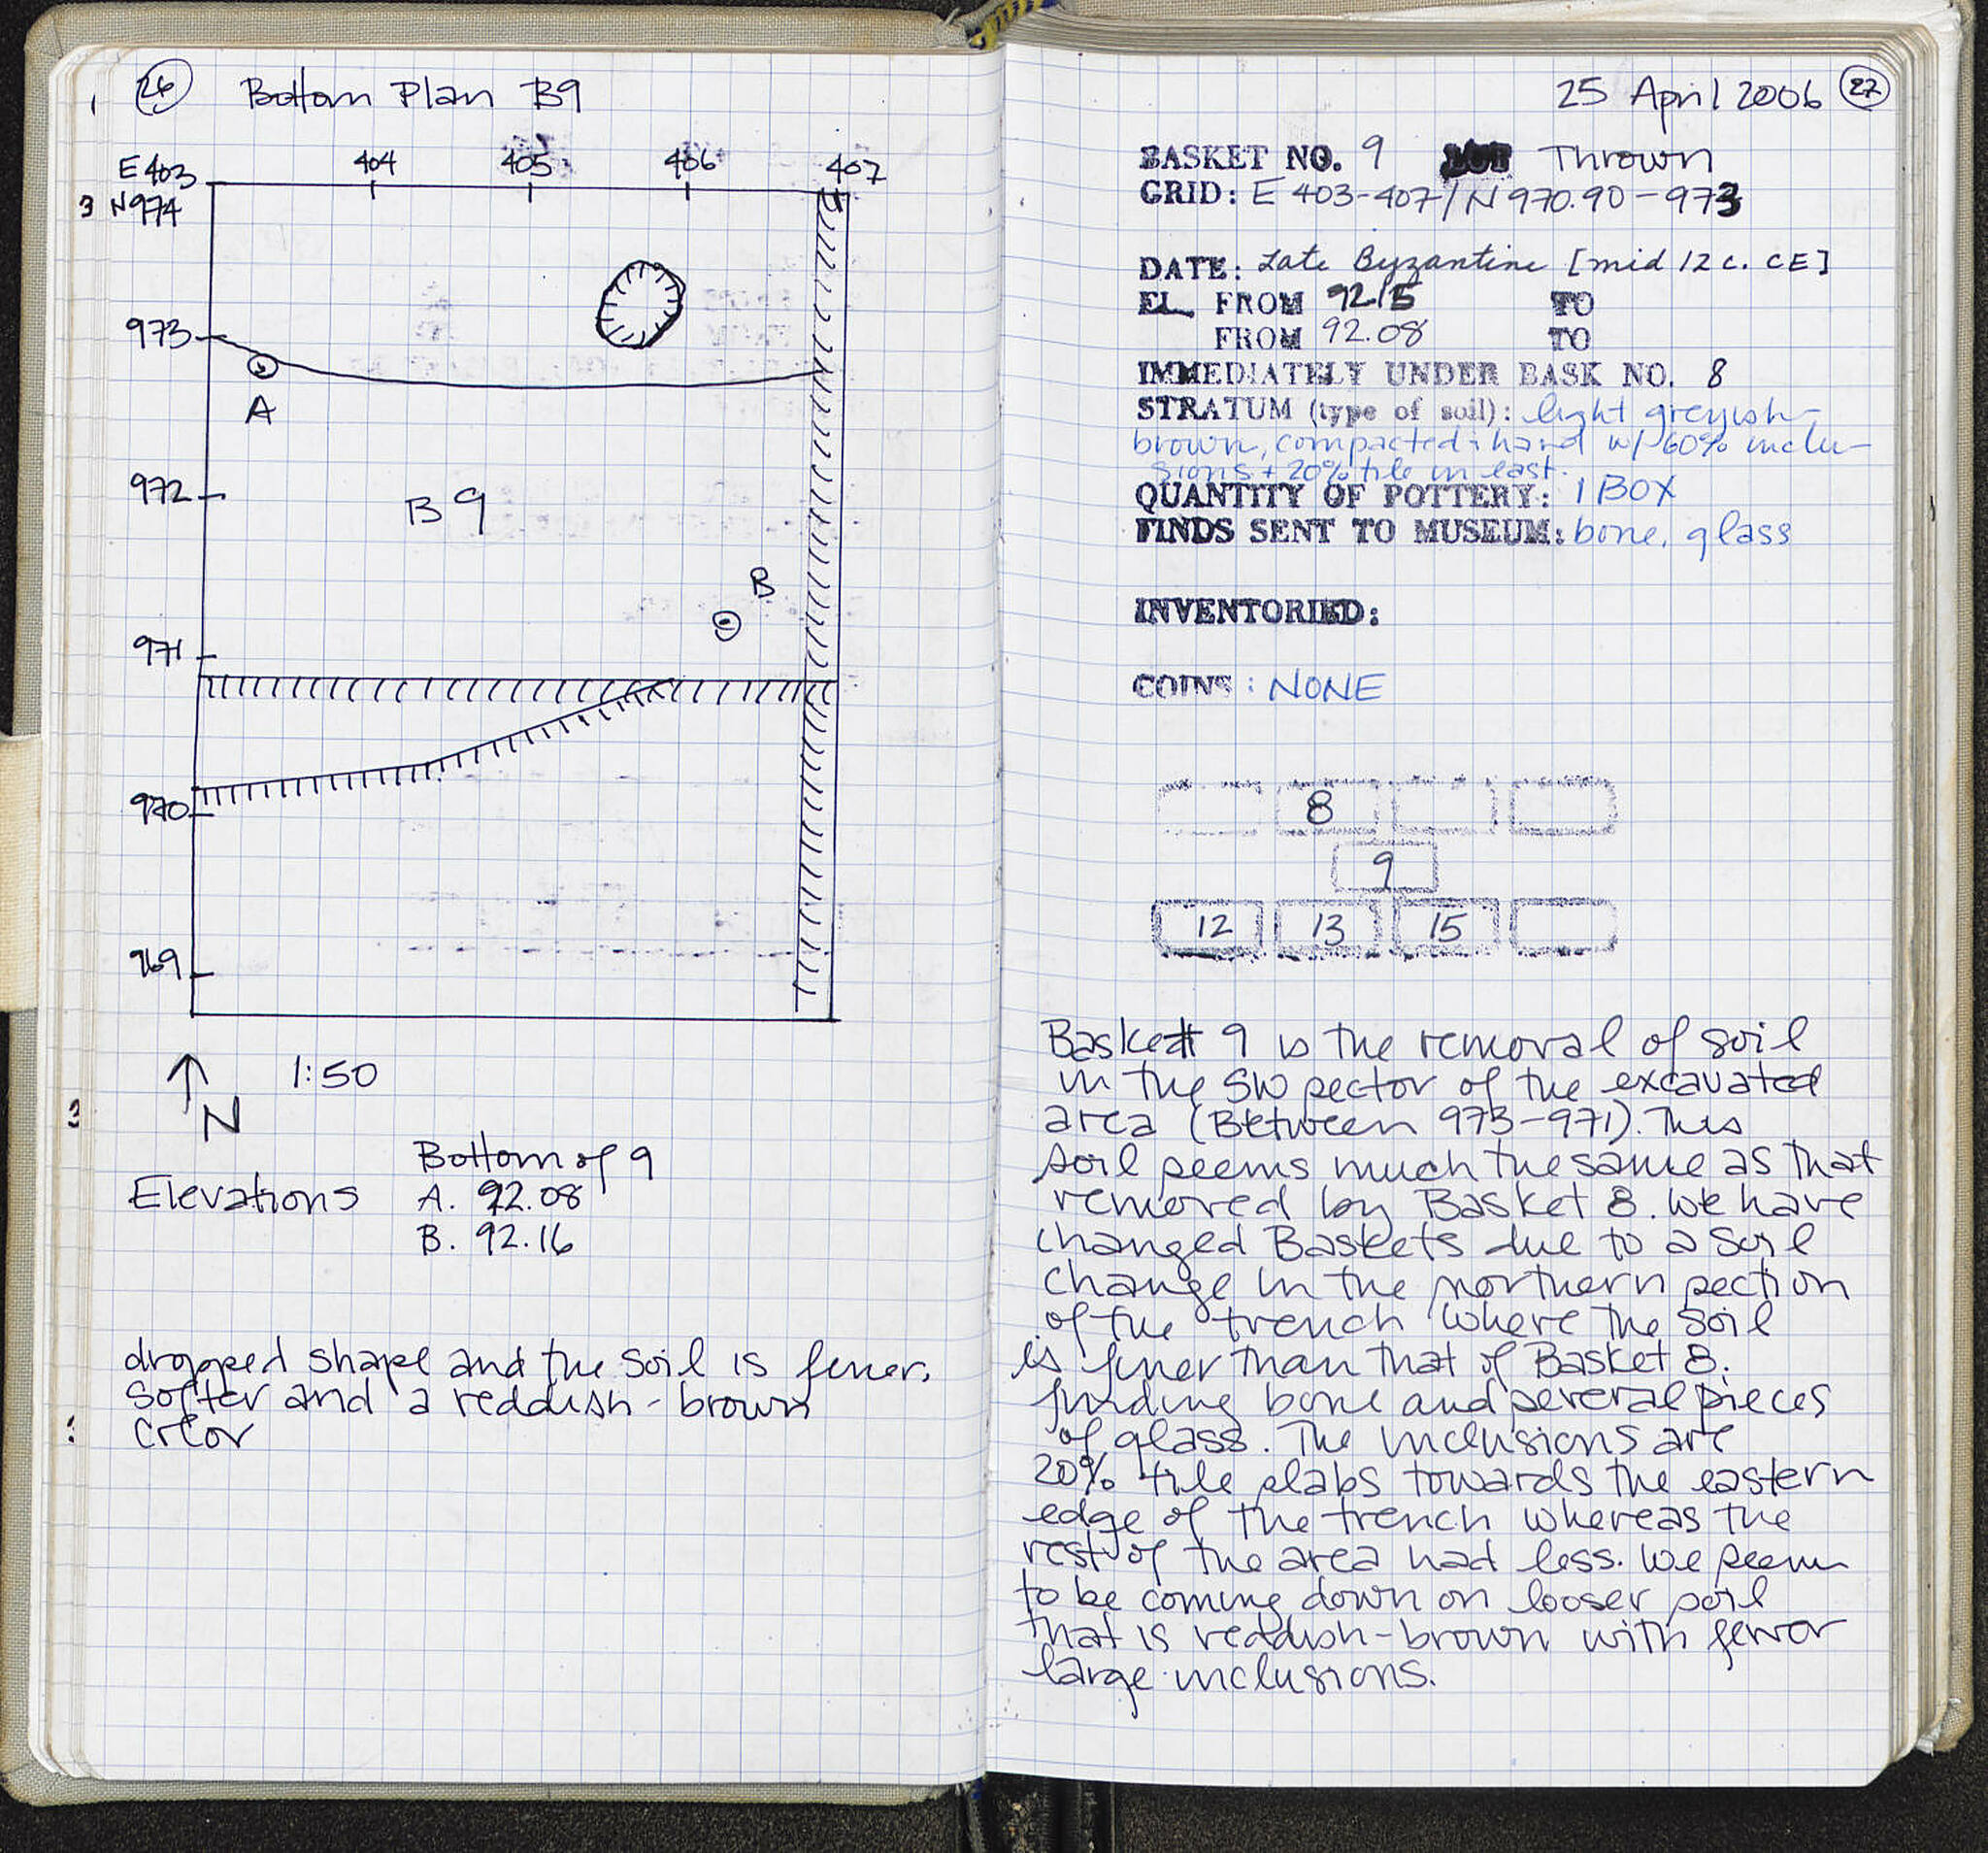 26 Bottom Plan B9
E 403 404 405 406 407
N 974
973
A
972
B9
B
971
970
969
N 1:50
Bottom of 9
Elevations A. 92.08
B. 92.16
dropped shape and the soil is finer,
softer and a reddish-brown
color
25 April 2006 27
BASKET NO. 9 Thrown
GRID: E 403-407/N 970.90-973
DATE: Late Byzantine [mid 12 c. CE]
EL. FROM 92.15 TO
FROM 92.08 TO
IMMEDIATELY UNDER BASK NO. 8
STRATUM (type of soil): light greyish-
brown, compacted & hard w/ 60% inclu-
sions + 20% tile in east.
QUANTITY OF POTTERY: 1 BOX
FINDS SENT TO MUSEUM: bone, glass
INVENTORIED:
COINS: NONE
8
9
12 13 15
Basket 9 is the removal of soil
in the SW sector of the excavated
area (Between 973-971). This
soil seems much the same as that
removed by Basket 8. We have
changed Baskets due to a soil
change in the northern section
of the trench where the soil
is finer than that of Basket 8.
finding bone and several pieces
of glass. The inclusions are
20% tile slabs towards the eastern
edge of the trench whereas the
rest of the area had less. We seem
to be coming down on looser soil
that is reddish-brown with fewer
large inclusions.